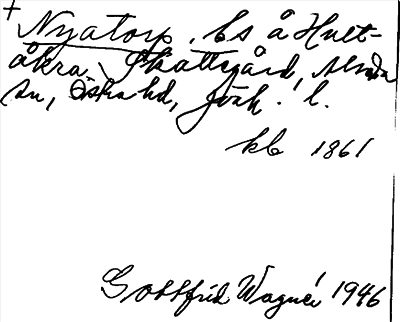 +
Nyatorp. bs å Hult-
åkra, Skattegård, Almundsn
sn, Östra hd, Jönk. l.
kb 1861
Gottfrid Wagnér 1946